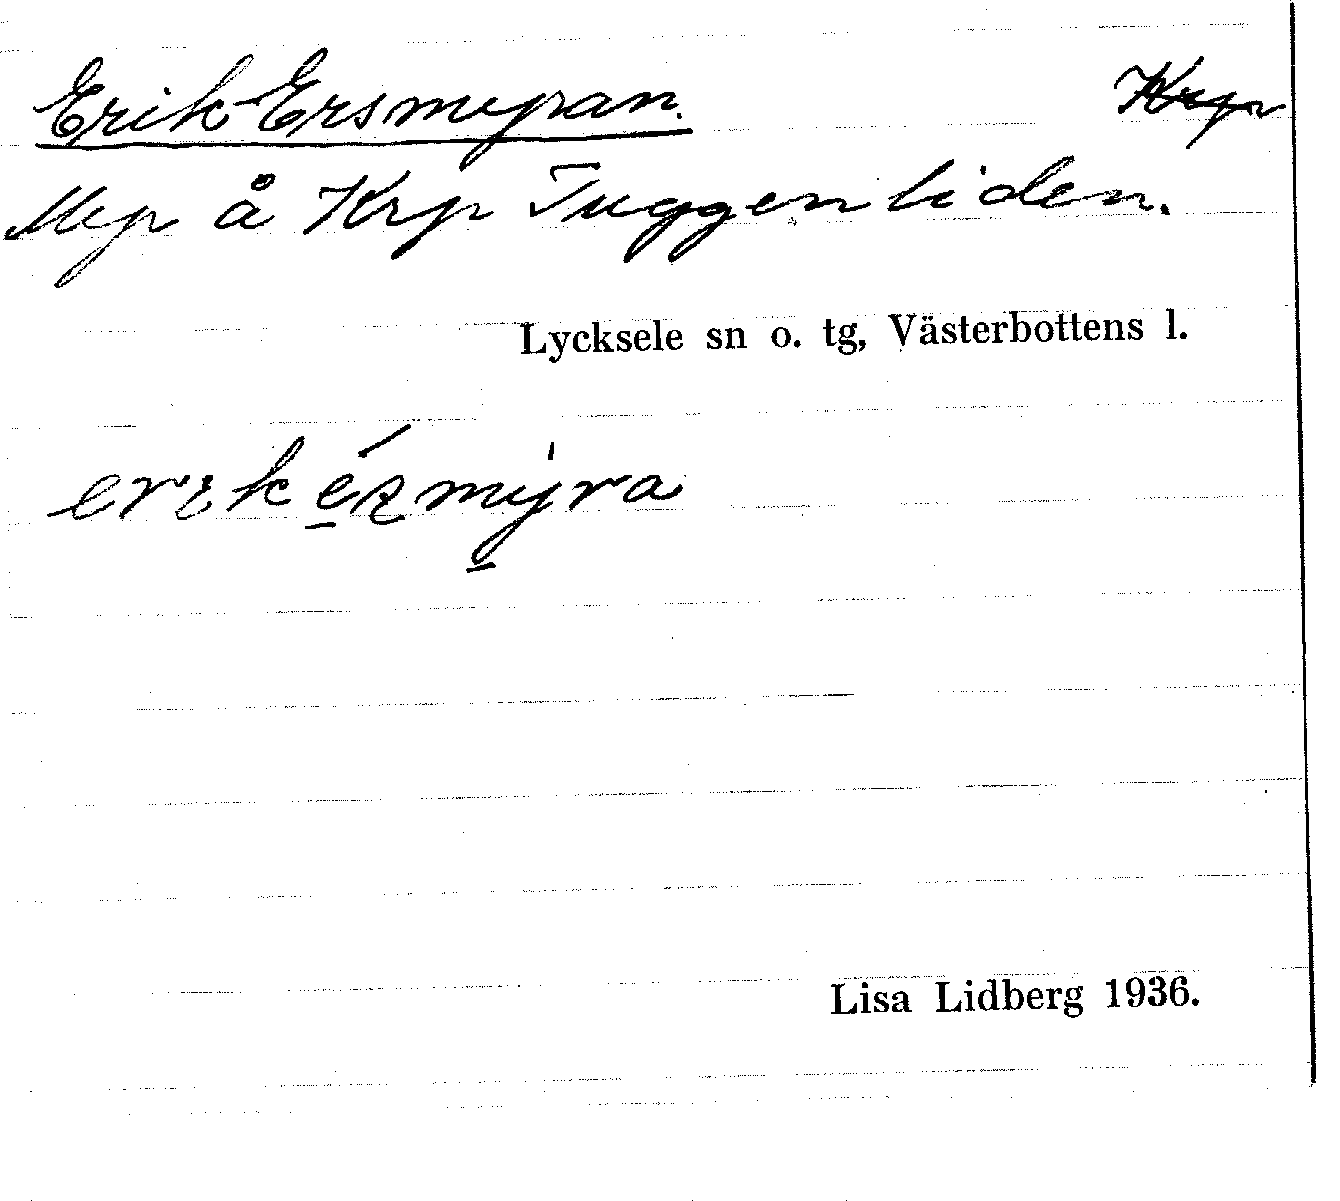 Erik-Ersmyran. Krp
Myr å Krp Tuggenliden.
Lycksele sn o. tg, Västerbottens l.
Lisa Lidberg 1936.